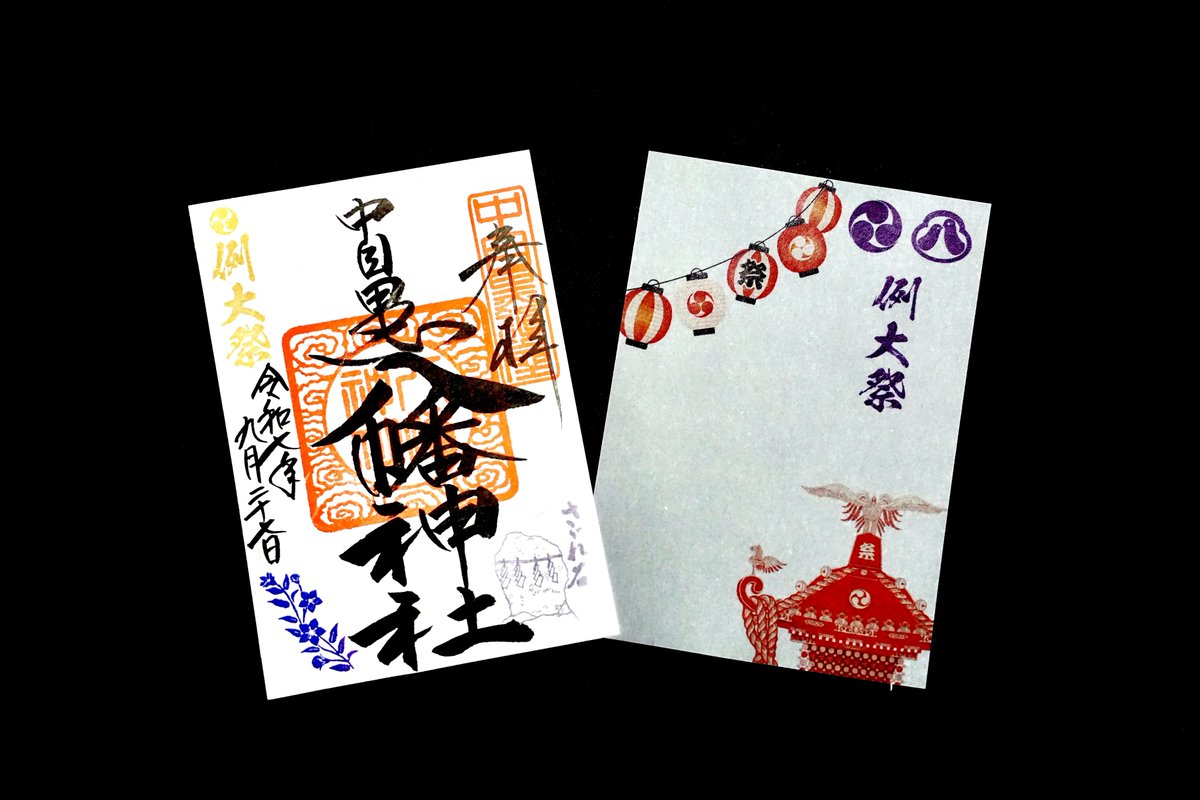 奉拝
中目黒
八幡神社
さざれ石
例大祭
令和七年
九月二十七日
八
例大祭
祭
祭